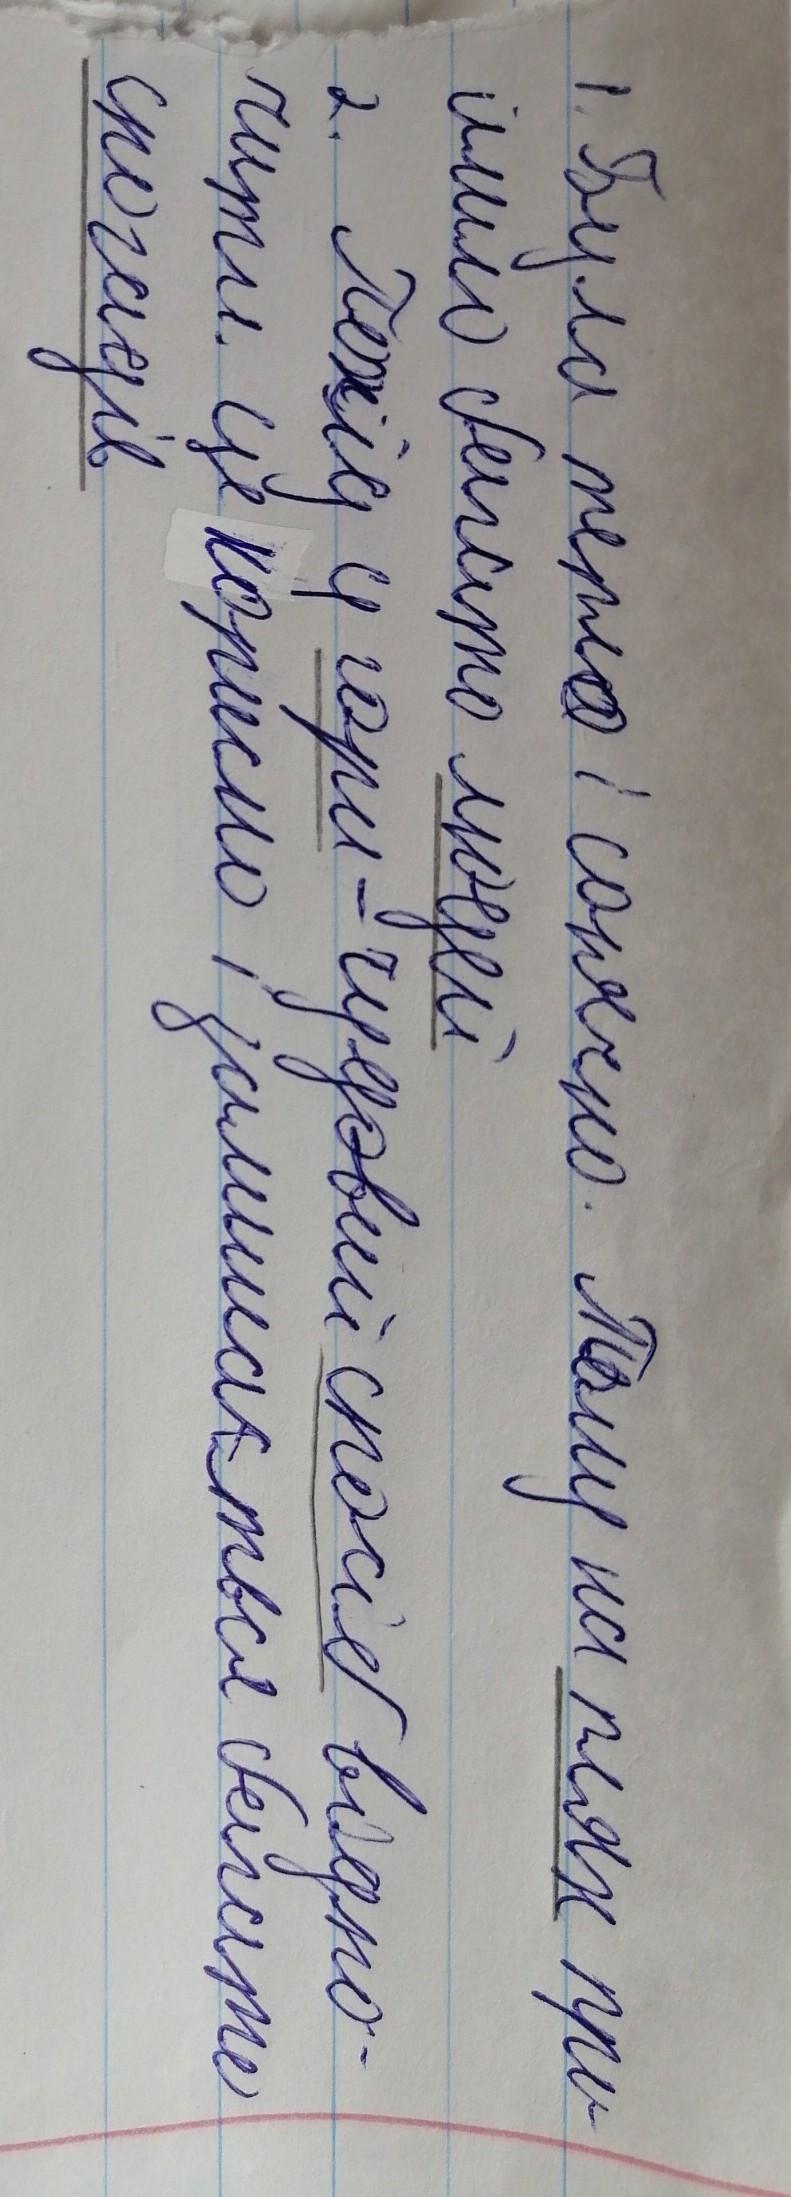 1. Була тепло і сонячно. Тому на пляж при-
йшло багато людей
2. Похід у гори - чудовий спосіб відпо-
чити. Це корисно і залишається багато
спогадів